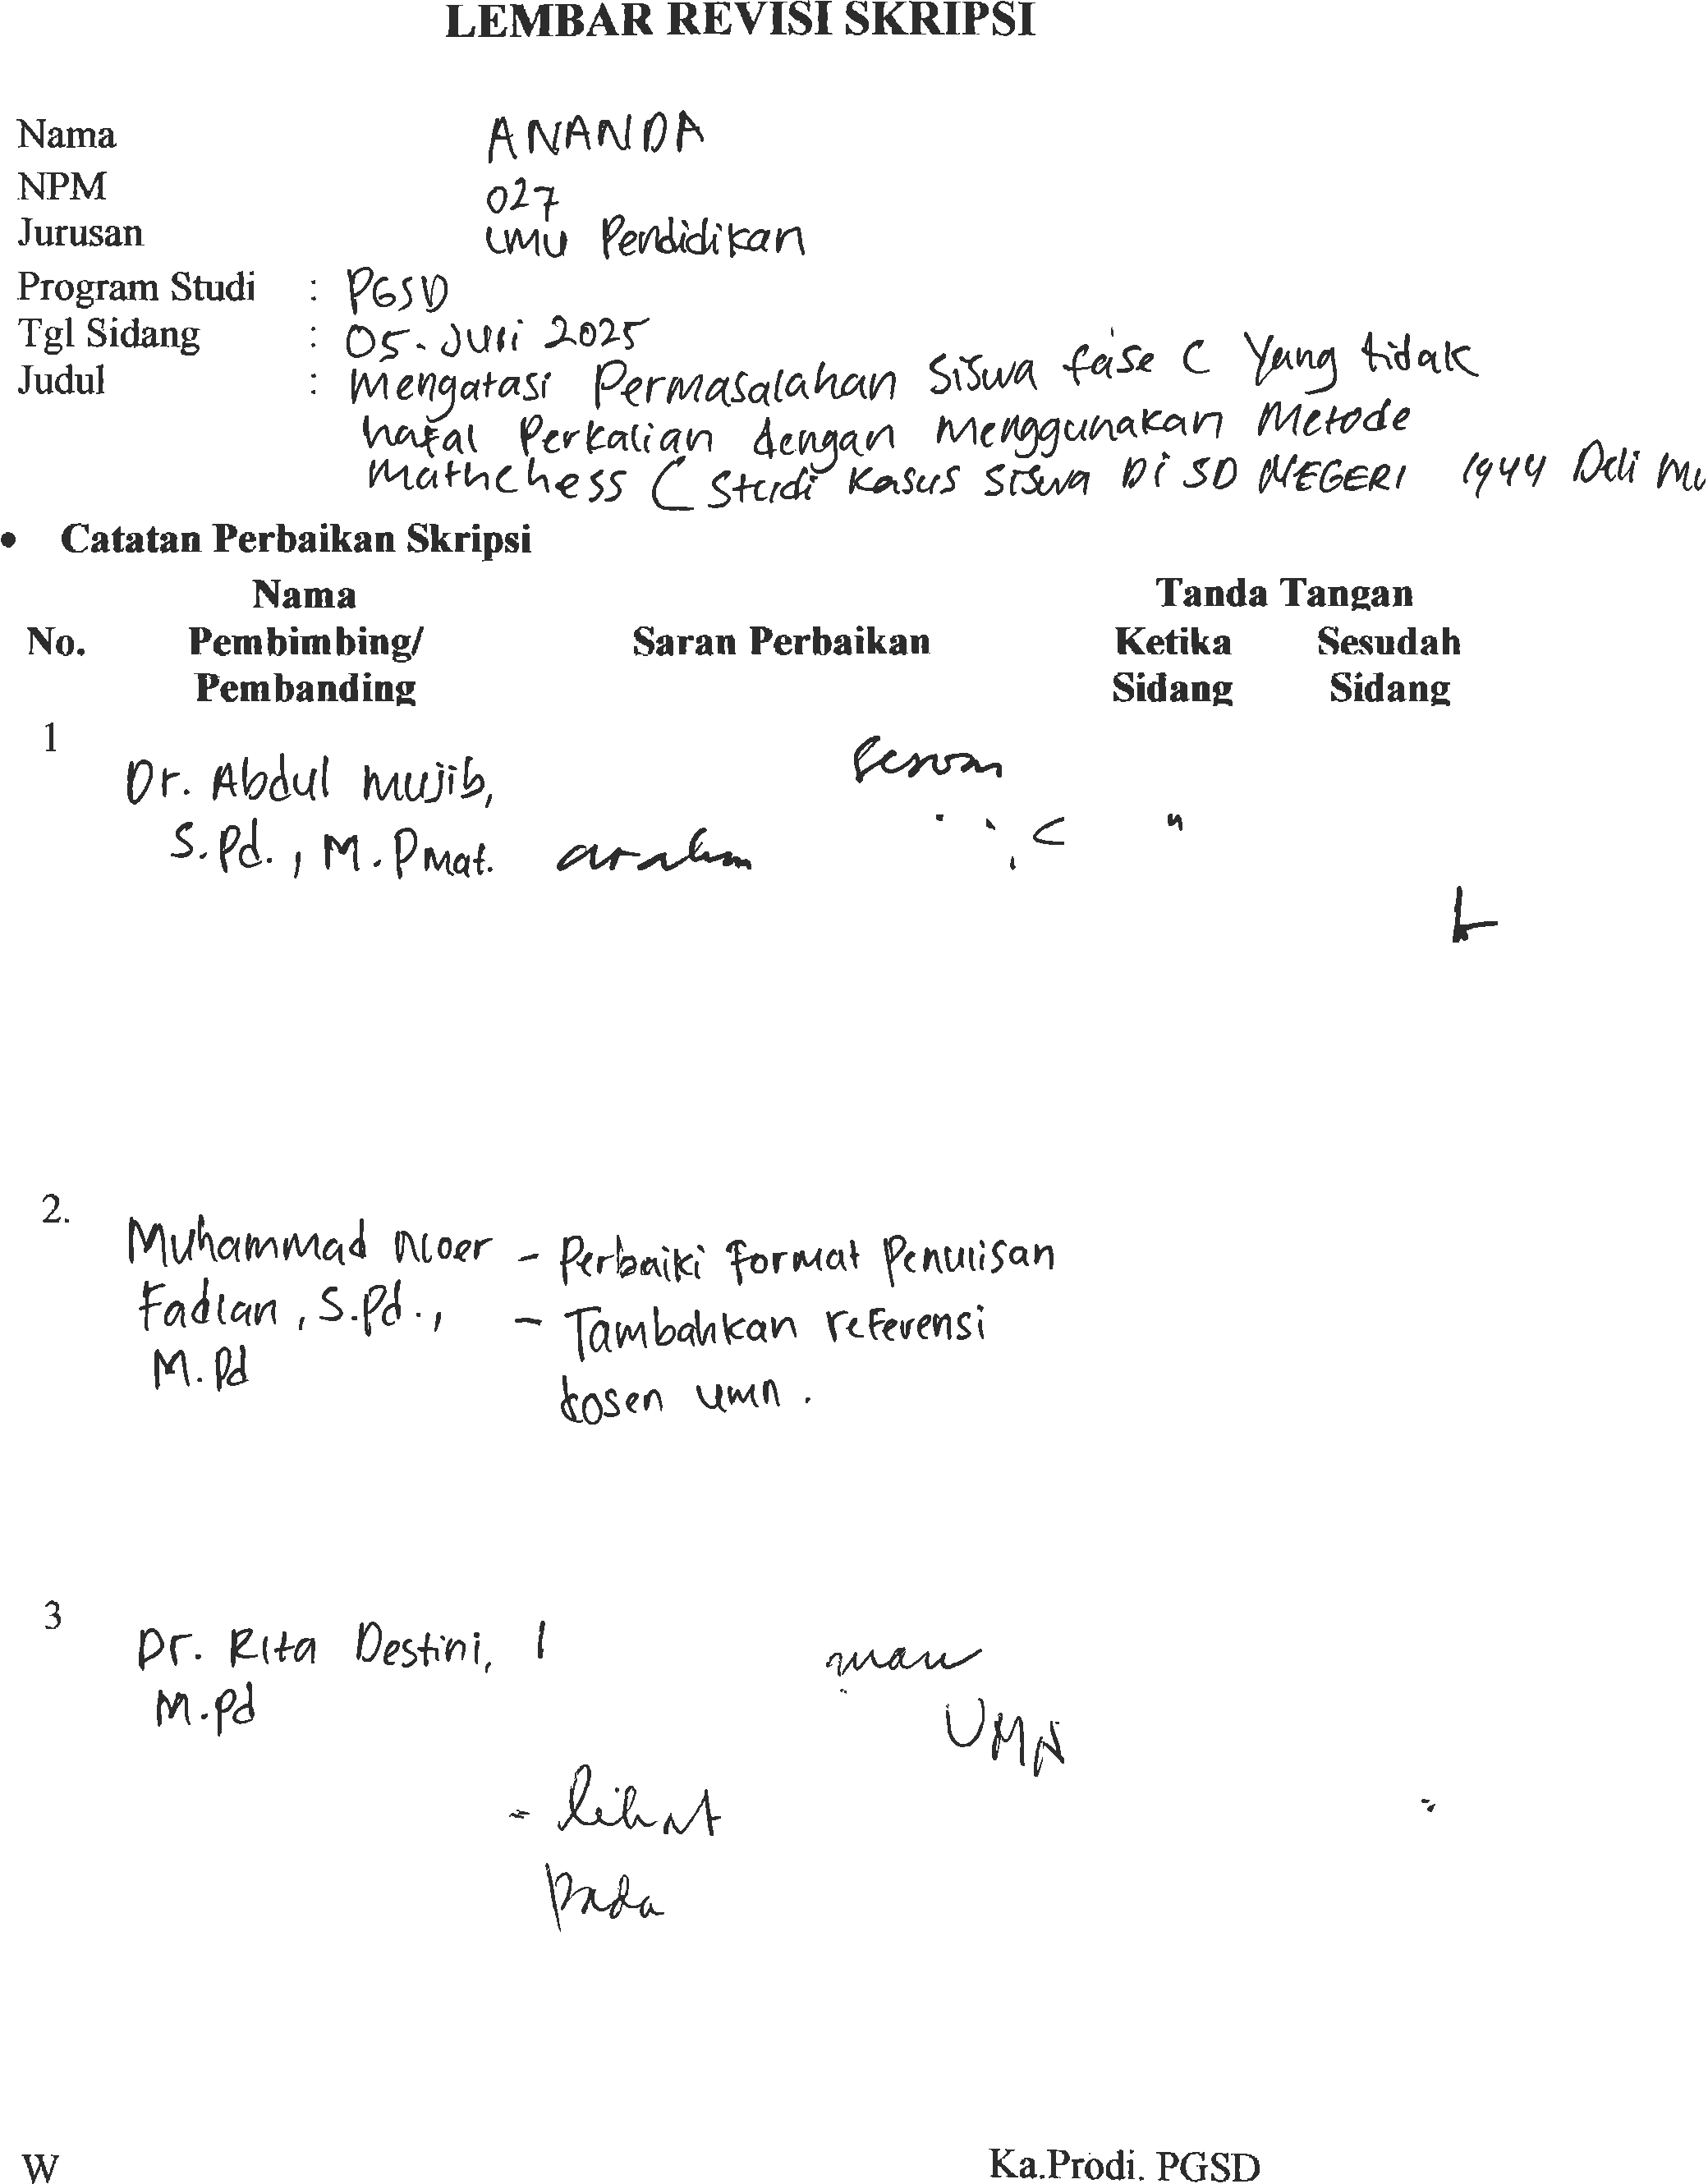 LEMBAR REVISI SKRIPSI
Nama ANANDA
NPM 027
Jurusan ilmu Pendidikan
Program Studi : PGSD
Tgl Sidang : 05 - Juli 2025
Judul : Mengatasi Permasalahan Siswa fase C Yang tidak
hafal Perkalian dengan Menggunakan Metode
Mathchess ( Studi Kasus Siswa Di SD NEGERI 1944 Deli Mu
• Catatan Perbaikan Skripsi
Nama Tanda Tangan
No. Pembimbing/ Saran Perbaikan Ketika Sesudah
Pembanding Sidang Sidang
1
Dr. Abdul Mujib,
S.Pd., M.PMat.
2.
Muhammad Noer - Perbaiki format Penulisan
Fadlan, S.Pd., - Tambahkan referensi
M.Pd
dosen umn.
3
Dr. Rita Destini,
M.Pd
UMN
- lihat
pada
W Ka.Prodi. PGSD